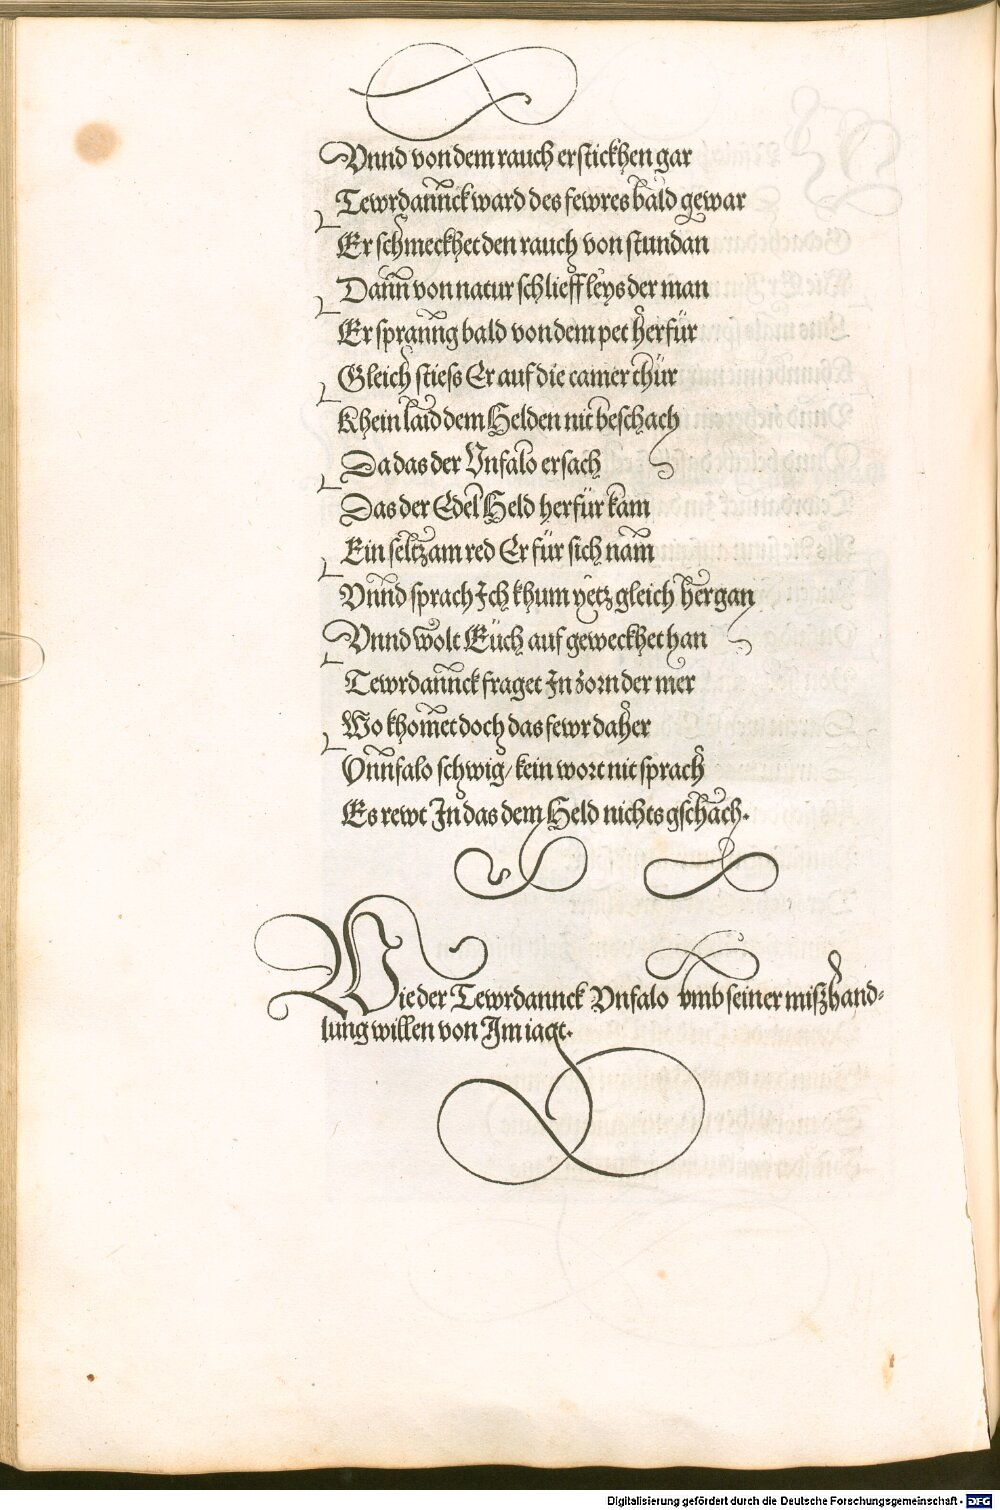 Vnnd von dem rauch erstickhen gar
Tewrdannck ward des fewres bald gewar
Er schmeckhet den rauch von stundan
Dann von natur schlieff leys der man
Er spranng bald von dem pet herfür
Gleich stiess Er auf die camer thür
Khein laid dem Helden nit beschach
Da das der Vnfalo ersach
Das der Edel Held herfür kam
Ein seltzam red Er für sich nam
Vnnd sprach Ich khum yetz gleich hergan
Vnnd wolt Eüch auf geweckhet han
Tewrdannck fraget In zorn der mer
Wo khomet doch das fewr daher
Vnnfalo schwig / kein wort nit sprach
Es rewt In das dem Held nichts gschach.
Wie der Tewrdannck Vnfalo vmb seiner mißhand-
lung willen von Im iagt.
Digitalisierung gefördert durch die Deutsche Forschungsgemeinschaft - DFG